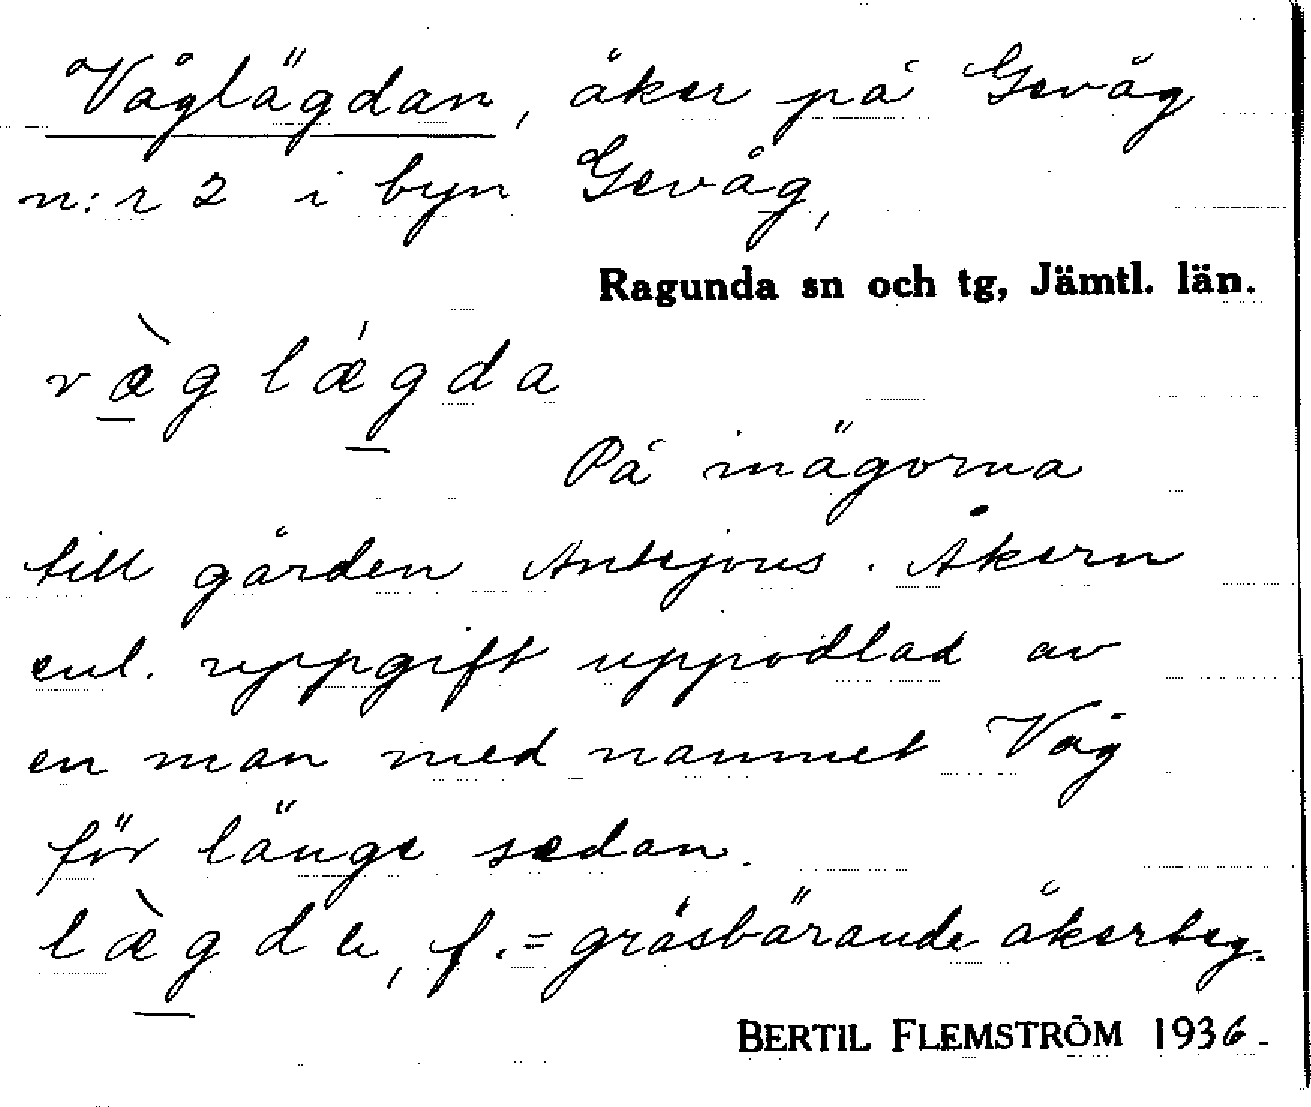 Våglägdan, åker på Gevåg
n:r 2 i byn Gevåg,
Ragunda sn och tg, Jämtl. län.
væ̀glǽgda
På inägorna
till gården Antsjons. Åkern
enl. uppgift uppodlad av
en man med namnet Våg
för länge sedan.
læ̀gde, f. = gräsbärande åkerteg.
BERTIL FLEMSTRÖM 1936.